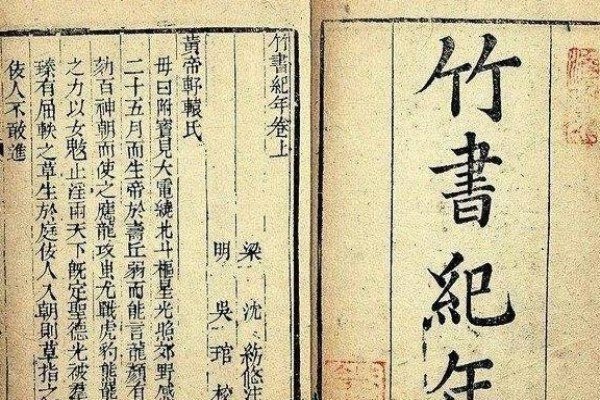 竹書紀年
竹書紀年卷上
梁 沈 約修注
明 吳 琯 校
黃帝軒轅氏
母曰附寶見大電繞北斗樞星光照郊野感
二十五月而生帝於壽丘弱而能言龍顏有
劾百神朝而使之應龍攻蚩尤戰虎豹熊羆
之力以女魃止淫雨天下既定聖德光被羣
臻有屈軼之草生於庭佞人入朝則草指之
佞人不敢進